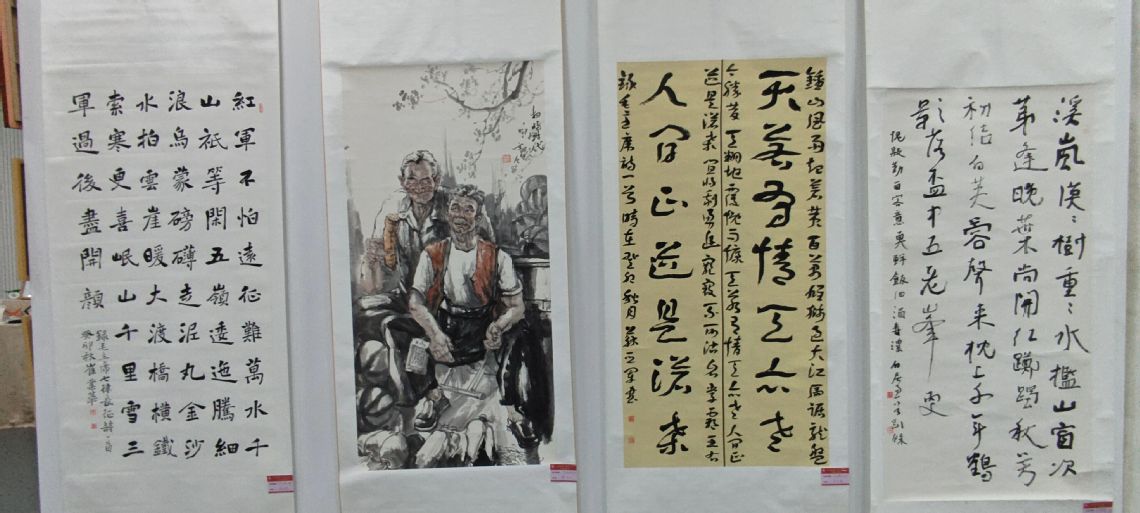 紅軍不怕遠征難萬水千
山祇等閑五嶺逶迤騰細
浪烏蒙磅礴走泥丸金沙
水拍雲崖暖大渡橋橫鐵
索寒更喜岷山千里雪三
軍過後盡開顏
錄毛主席七律長征詩一首
癸卯秋
鍾山風雨起蒼黃百萬雄師過大江虎踞龍盤
天若有情天亦老
今勝昔天翻地覆慨而慷天若有情天亦老人間正
道是滄桑宜將剩勇追窮寇不可沽名學霸王
人間正道是滄桑
錄毛澤東詩一首時在癸卯秋月
溪嵐漠々樹重々水檻山窗次
第逢晚葉尚開紅躑躅秋芳
初結白芙蓉聲來枕上千年鶴
影落盃中五老峰更
愧殷勤留客意魚鮮飯細酒香濃